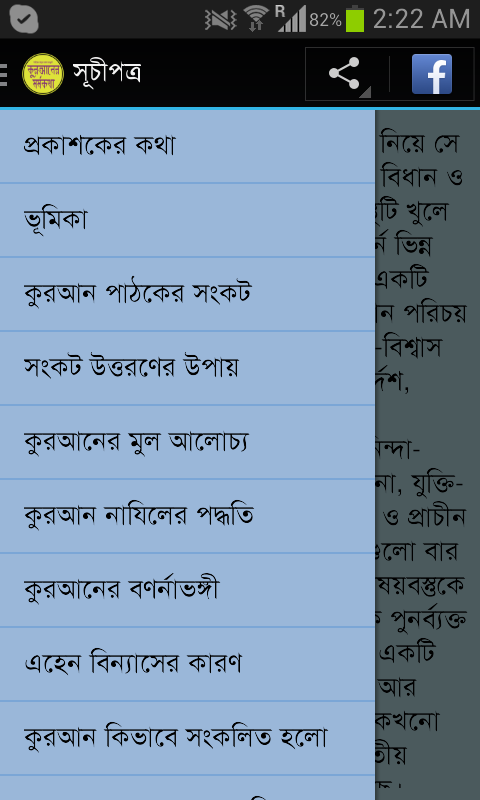 R 82% 2:22 AM
কুরআনের
মর্মকথা
সূচীপত্র
f
প্রকাশকের কথা
ভূমিকা
কুরআন পাঠকের সংকট
সংকট উত্তরণের উপায়
কুরআনের মুল আলোচ্য
কুরআন নাযিলের পদ্ধতি
কুরআনের বণর্নাভঙ্গী
এহেন বিন্যাসের কারণ
কুরআন কিভাবে সংকলিত হলো
নিয়ে সে
বিধান ও
টি খুলে
ভিন্ন
একটি
ন পরিচয়
-বিশ্বাস
র্দেশ,
নিন্দা-
না, যুক্তি-
ও প্রাচীন
গুলো বার
ষয়বস্তুকে
পুনর্ব্যক্ত
একটি
আর
কখনো
তীয়